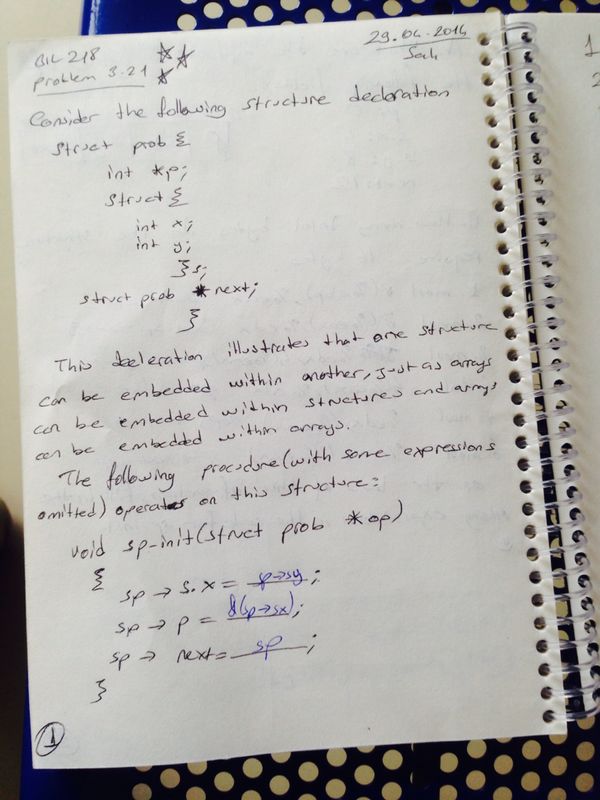 BIL 218
problem 3.21
29.04.2014
Salı
Consider the following structure decleration
struct prob {
int *p;
struct {
int x;
int y;
} s;
struct prob *next;
}
This decleration illustrates that one structure
can be embedded within another, just as arrays
can be embedded within structures and arrays
can be embedded within arrays.
The following procedure (with some expressions
omitted) operates on this structure:
void sp-init(struct prob *op)
{
sp → s.x = sp→sy;
sp → p = &(sp→sx);
sp → next = sp;
}
1